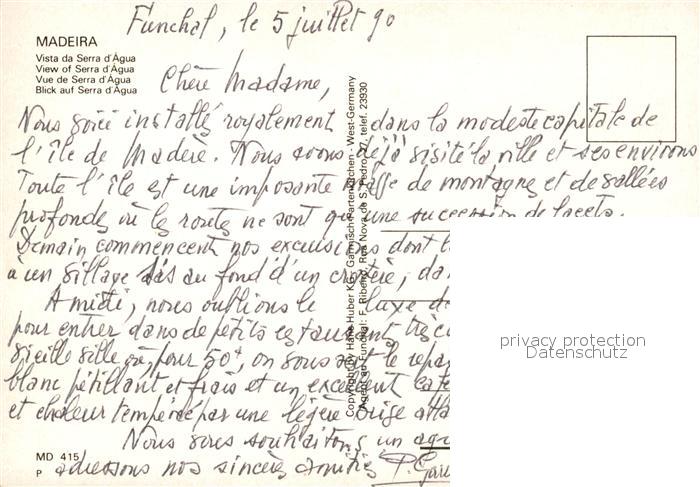 Funchal, le 5 juillet 90
MADEIRA
Vista da Serra d'Água
View of Serra d'Água
Vue de Serra d'Água
Blick auf Serra d'Água
Chère Madame,
Nous voici installés royalement dans la modeste capitale de
l'île de Madère. Nous avons déjà visité la ville et ses environs
Toute l'île est une imposante masse de montagnes et de vallées
profondes où les routes ne sont qu'une succession de lacets.
Demain commencent nos excursions dont
à un village sis au fond d'un cratère,
A midi, nous oublions le luxe
pour entrer dans de petits restaurants
vieille ville où, pour 50f, on vous sert le repas
blanc pétillant et frais et un excellent
et chaleur tempérée par une légère brise
Nous vous souhaitons un
adressons nos sincères amitiés
MD 415
P
Copyright by Hans Huber KG., Garmisch-Partenkirchen - West-Germany
Agent au Funchal: F. Ribeiro, Rua Nova de S. Pedro, 27, telef. 23930
privacy protection
Datenschutz